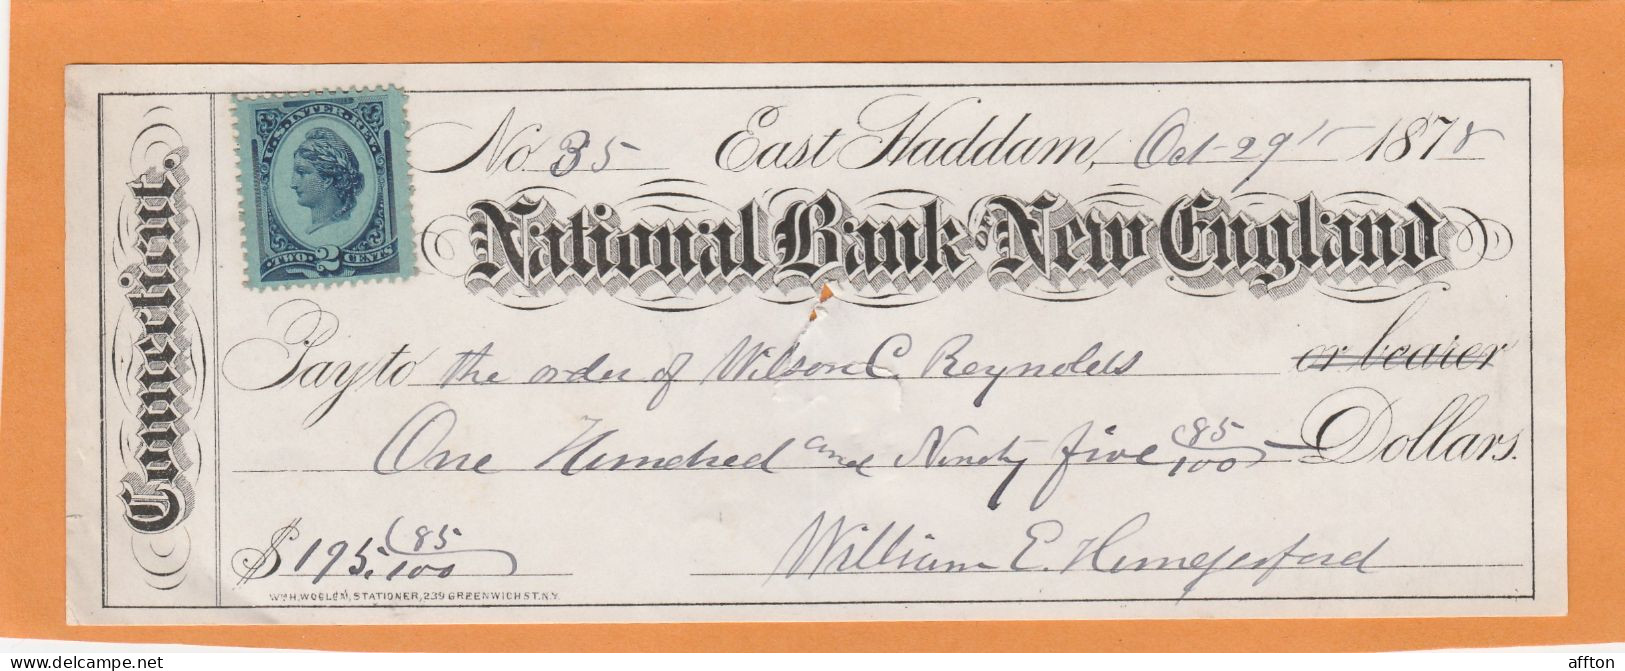 Connecticut.
U.S. INTER. REV.
TWO 2 CENTS
No 35 East Haddam, Oct 29th 1878
National Bank OF New England
Pay to the order of Wilson C. Reynolds or bearer
One Hundred and Ninety five 85/100 Dollars.
$195.85/100 William E. Hungerford
WM H. WOGLOM, STATIONER, 239 GREENWICH ST. N.Y.
affton
delcampe.net